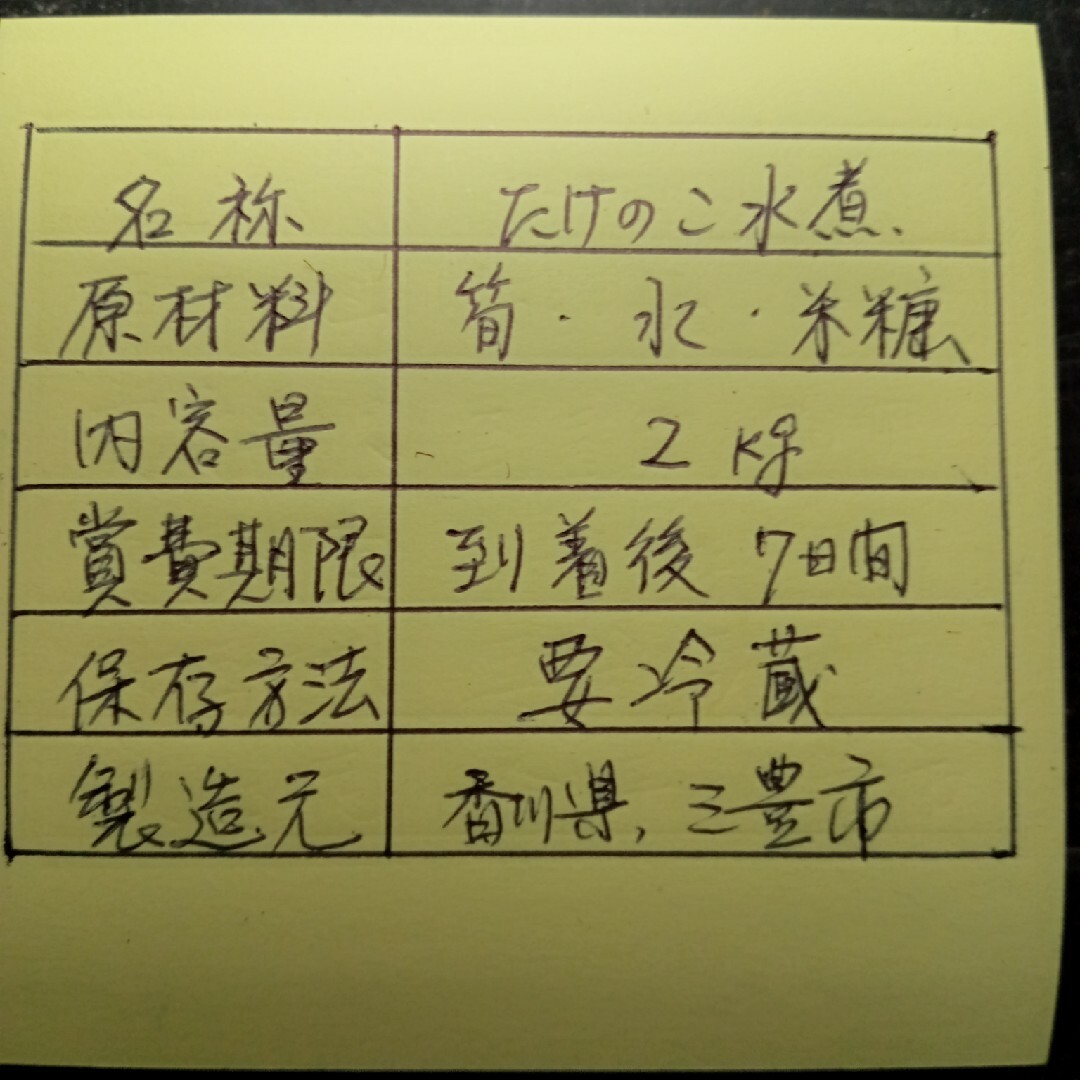 名称 たけのこ水煮
原材料 筍・水・米糠
内容量 2 Kg
賞費期限 到着後 7日間
保存方法 要冷蔵
製造元 香川県、三豊市